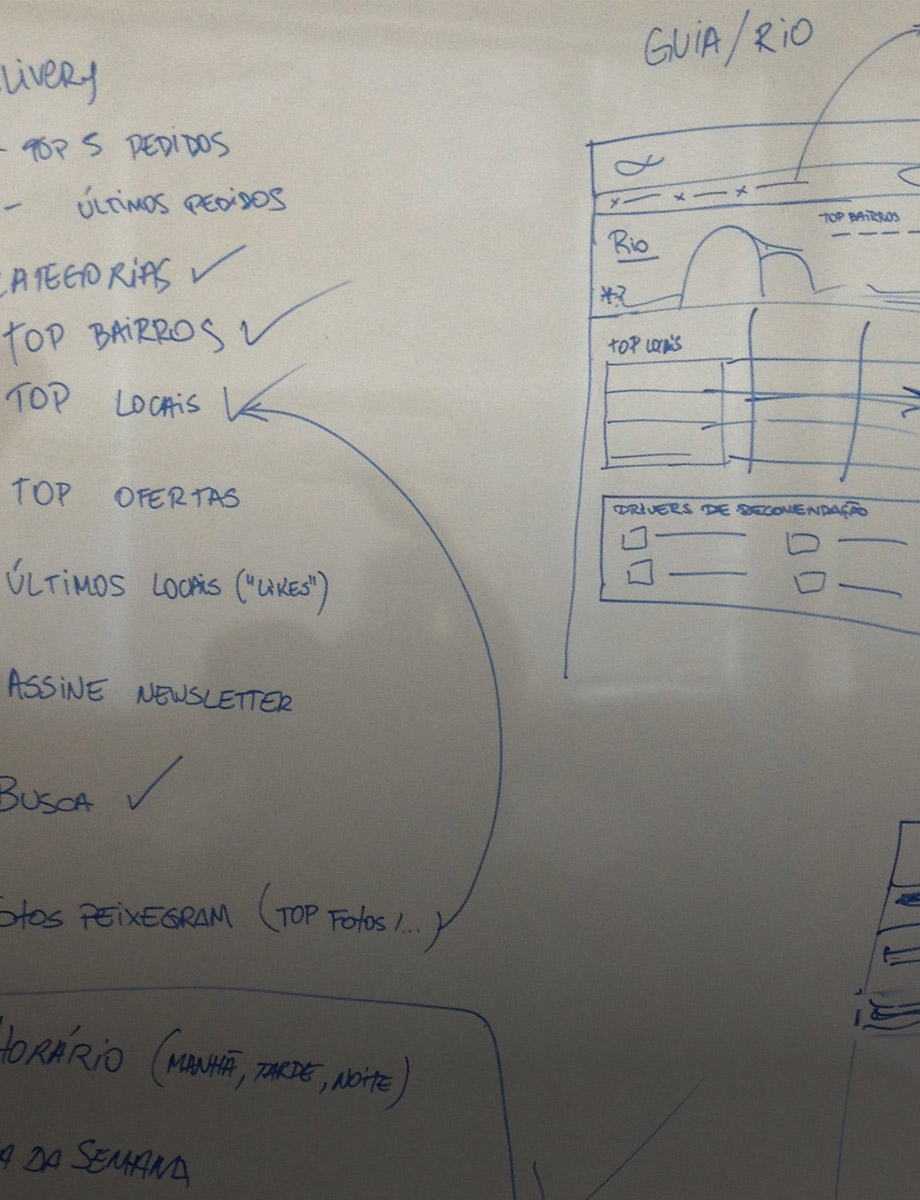 LIVERY
- TOP 5 PEDIDOS
- ÚLTIMOS PEDIDOS
CATEGORIAS ✓
TOP BAIRROS ✓
TOP LOCAIS ✓
TOP OFERTAS
ÚLTIMOS LOCAIS ("LIKES")
ASSINE NEWSLETTER
BUSCA ✓
FOTOS PEIXEGRAM (TOP FOTOS /...)
HORÁRIO (MANHÃ, TARDE, NOITE)
A DA SEMANA
GUIA/RIO
TOP BAIRROS
Rio
TOP LOCAIS
DRIVERS DE RECOMENDAÇÃO